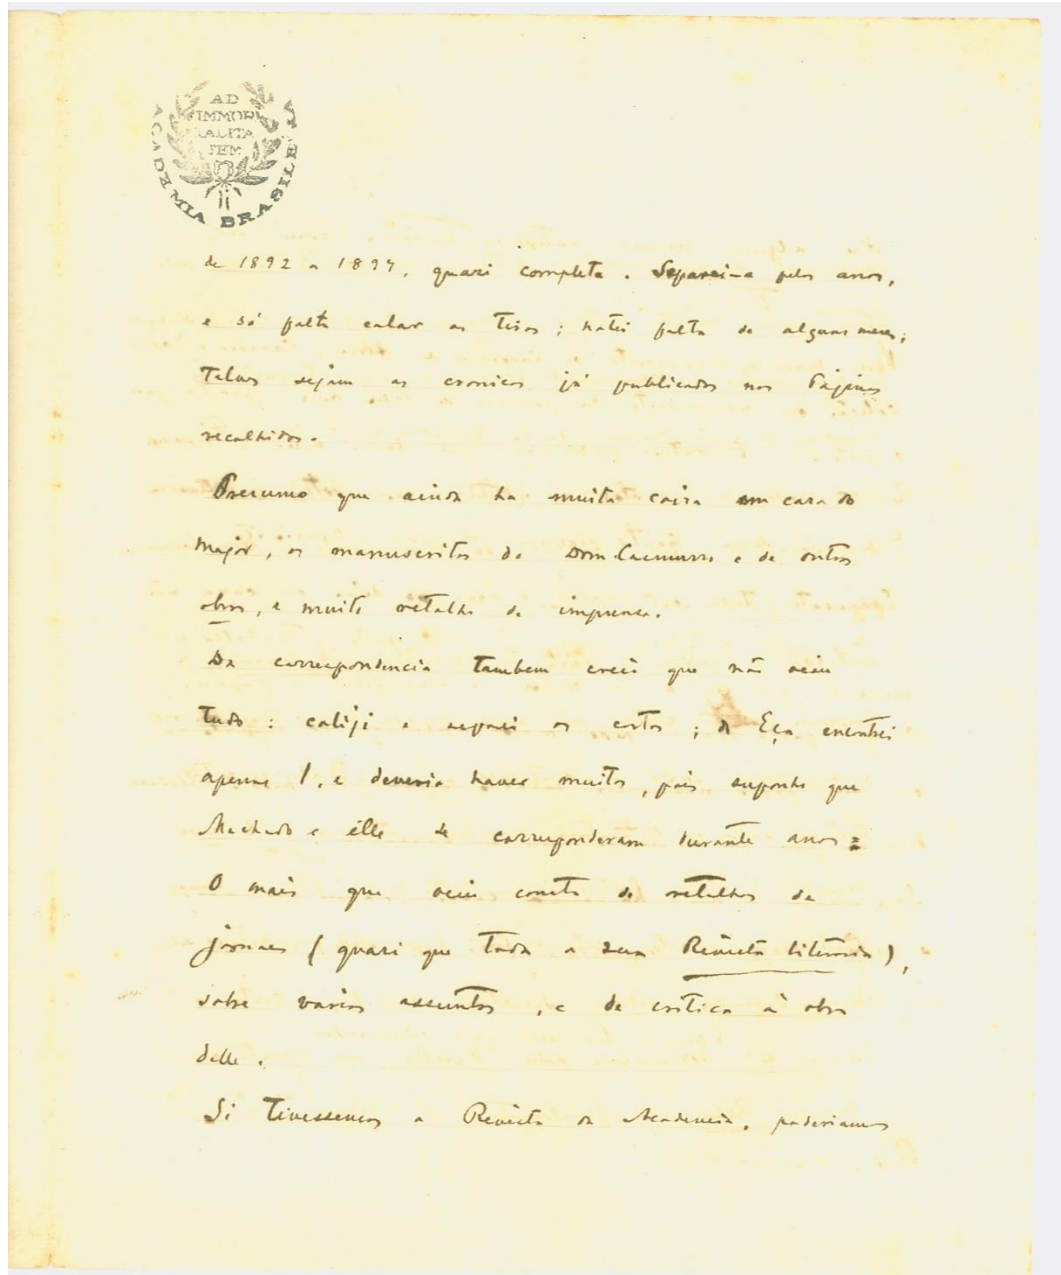 AD
IMMOR
TALITA
TEM
ACADEMIA BRASILEIRA
de 1892 a 1897, quasi completa. Separei-a pelos anos,
e só falta colar as tiras; notei falta de alguns meses;
Talvez sejam as cronicas já publicadas nas Páginas
recolhidas.
Presumo que ainda ha muita coisa em casa do
major, os manuscritos do Dom Casmurro e de outras
obras, e muito retalho de imprensa.
Da correspondencia tambem creio que não veiu
tudo: coligi e separei as cartas; do Eça encontrei
apenas 1, e deveria haver muitas, pois suponho que
Machado e elle se corresponderam durante anos.
O mais que veiu consta de retalhos de
jornaes (quasi que toda a sua Revista literária),
sobre varios assuntos, e de crítica à obra
delle.
Si tivessemos a Revista da Academia, poderiamos